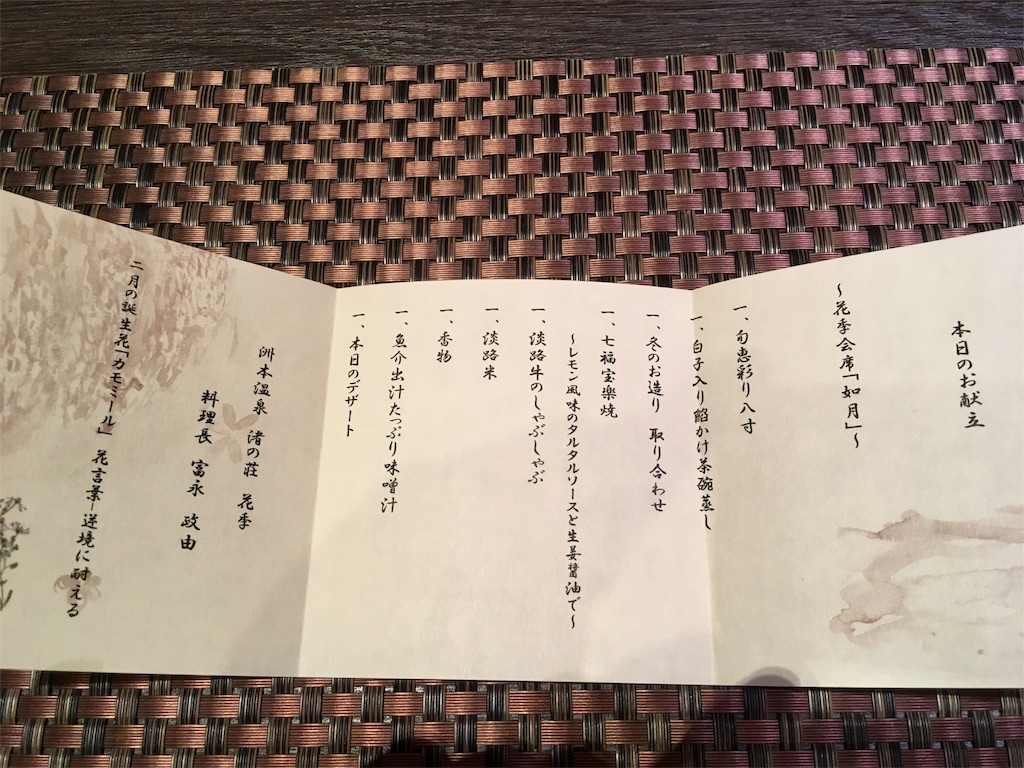 本日のお献立
～花季会席「如月」～
一、旬恵彩り八寸
一、白子入り餡かけ茶碗蒸し
一、冬のお造り 取り合わせ
一、七福宝楽焼
～レモン風味のタルタルソースと生姜醤油で～
一、淡路牛のしゃぶしゃぶ
一、淡路米
一、香物
一、魚介出汁たっぷり味噌汁
一、本日のデザート
洲本温泉 渚の荘 花季
料理長 富永 政由
二月の誕生花「カモミール」 花言葉―逆境に耐える